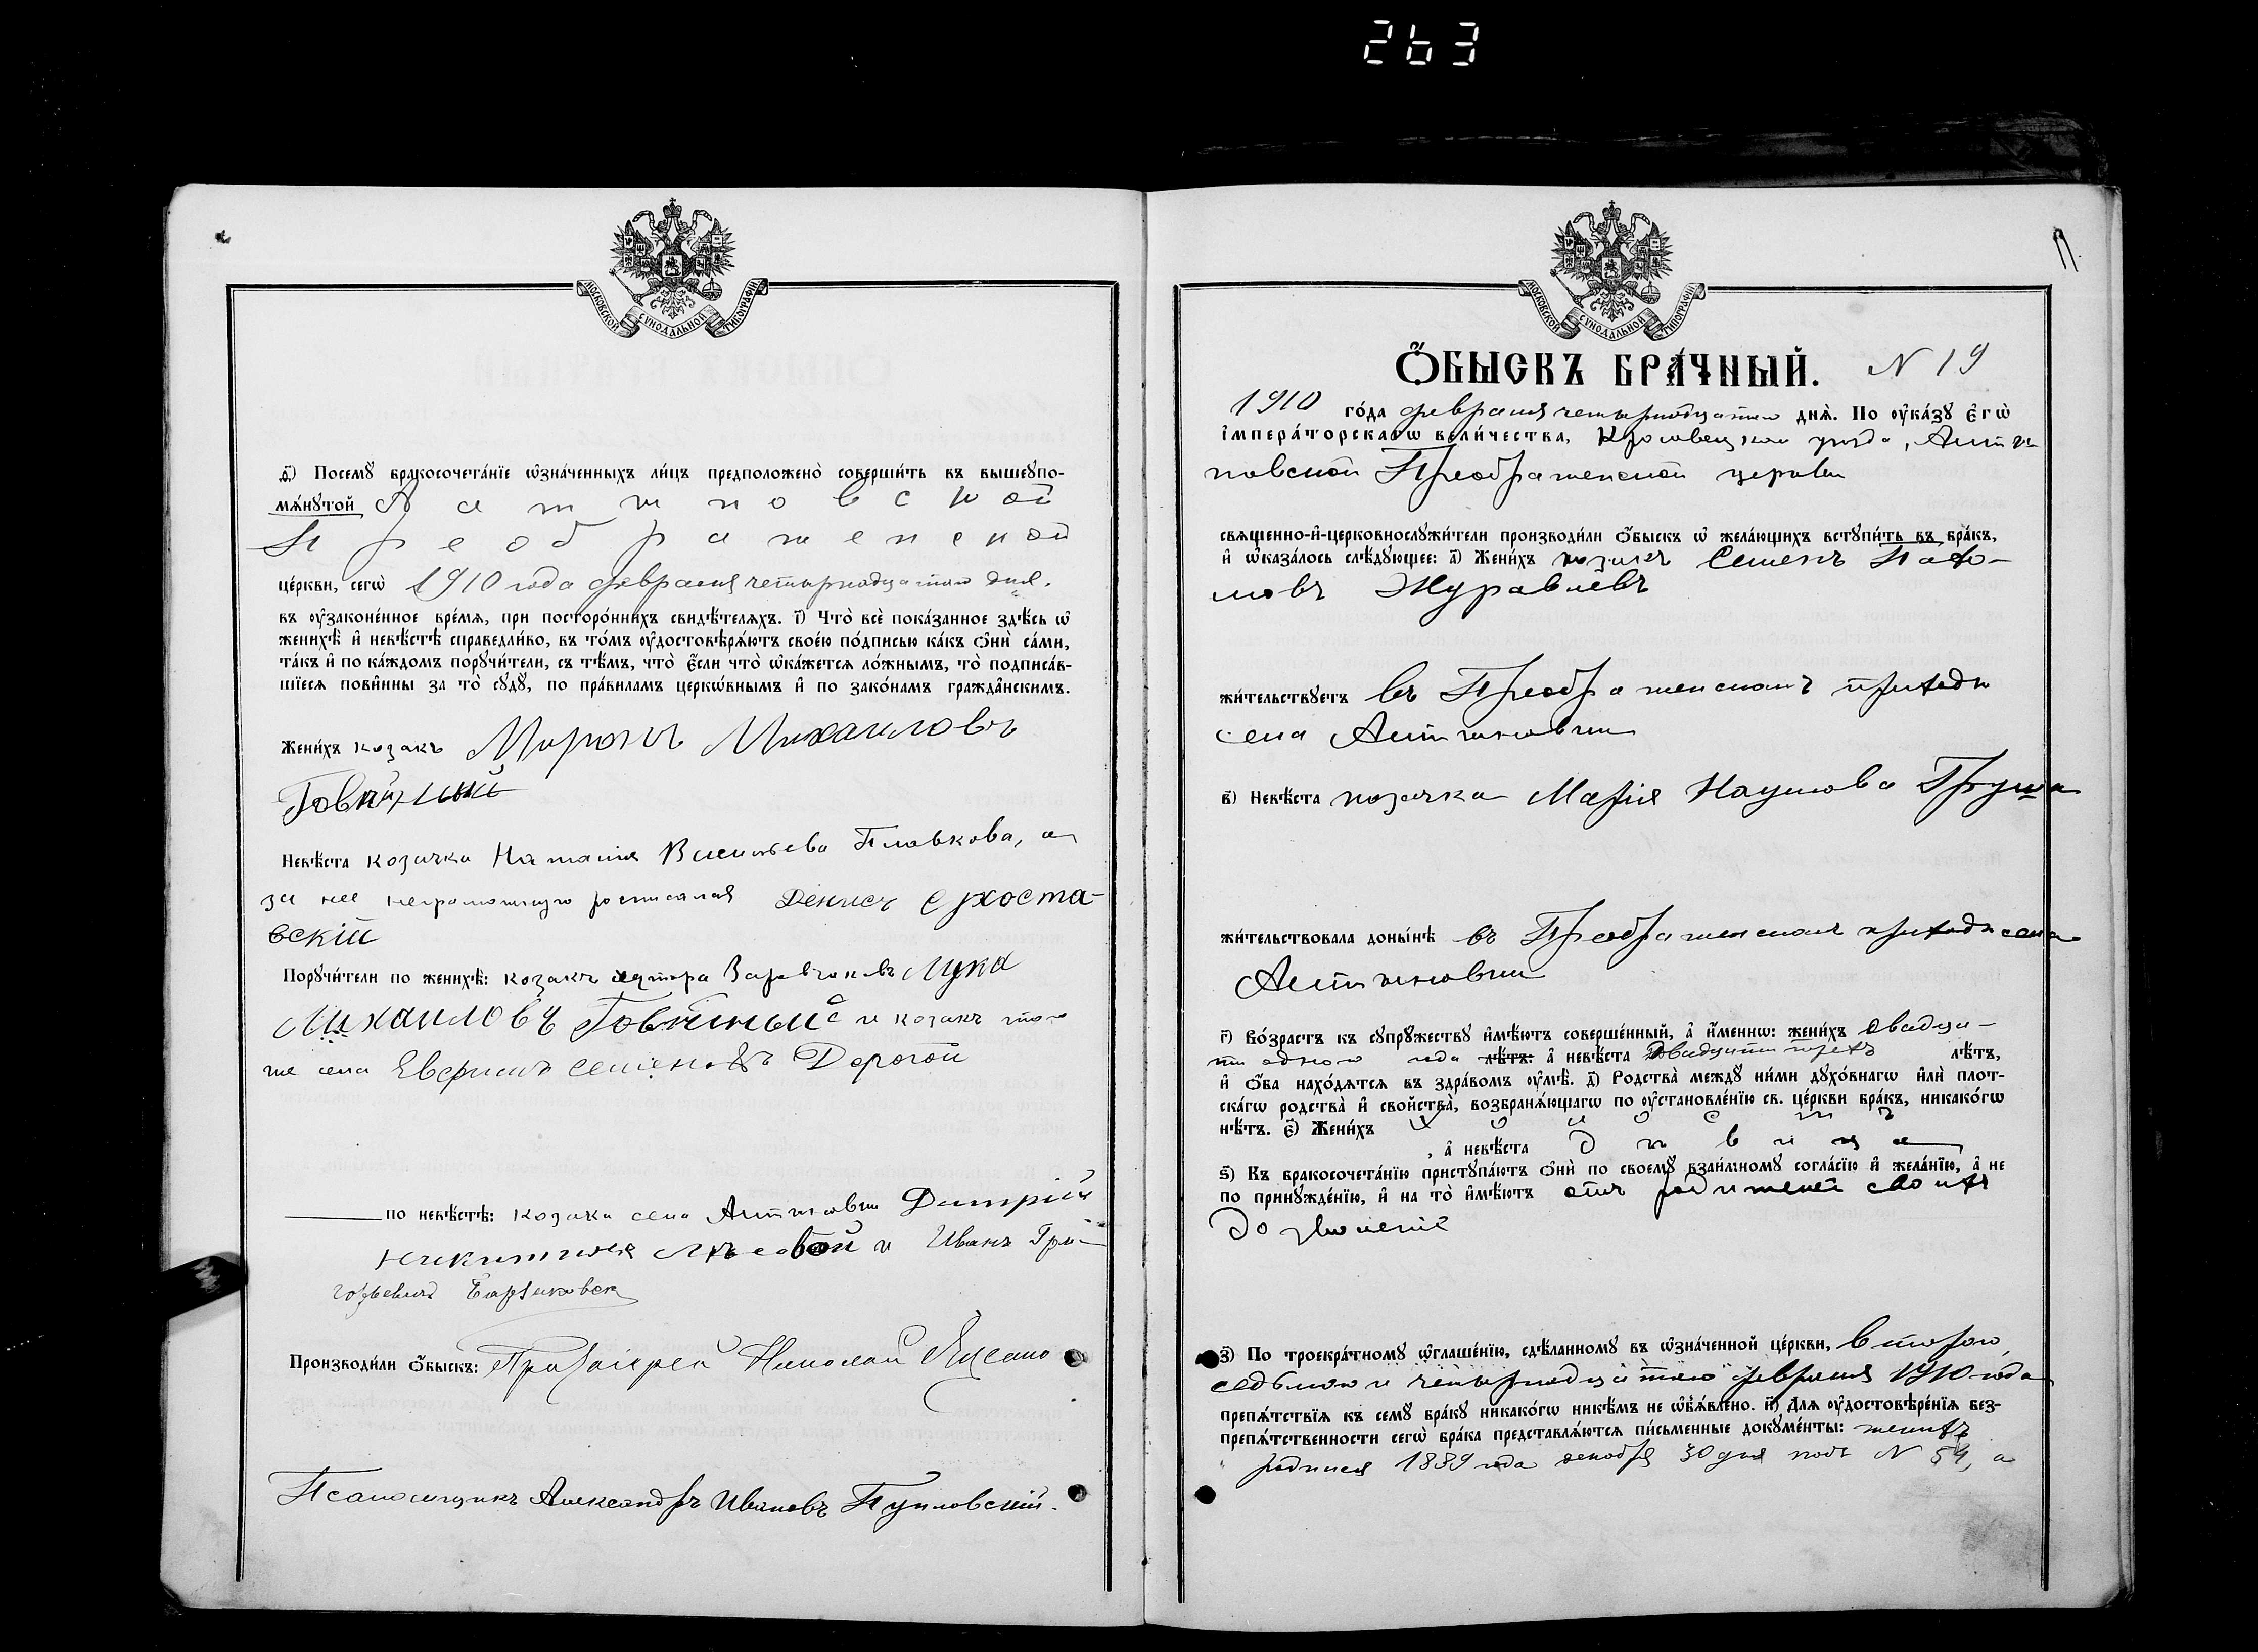 263
МОСКОВСКОЙ СУНОДАЛЬНОЙ ТИПОГРАФІИ
ѳ҃) Посемꙋ бракосочета́нїе ѡ҆зна́ченныхъ ли́цъ предположено̀ соверши́ть въ вышеꙋпо-
мѧ́нꙋтой Антиповской
Преображенской
це́ркви, сегѡ̀ 1910 года февраля четырнадцатаго дня.
въ ᲂу҆зако́ненное вре́мѧ, при посторо́ннихъ свидѣ́телѧхъ. і҃) Что̀ всѐ пока́занное здѣ́сь ѡ҆
женихѣ̀ и҆ невѣ́стѣ справедли́во, въ то́мъ ᲂу҆достовѣрѧ́ютъ свое́ю по́дписью ка́къ ѻ҆нѝ са́ми,
та́къ и҆ по ка́ждомъ порꙋчи́тели, съ тѣ́мъ, что̀ є҆́сли что̀ ѡ҆ка́жетсѧ ло́жнымъ, то̀ подписа́в-
шїесѧ пови́нны за то̀ сꙋдꙋ̀, по пра́виламъ церкѡ́внымъ и҆ по зако́намъ гражда́нскимъ.
Жени́хъ козакъ Миронъ Михаиловъ
Невѣ́ста козачка Наталія Васильева Плавкова, а
за нее неграмотную росписался Денисъ Сухоста-
вскій
Порꙋчи́тели по женихѣ̀: козакъ хутора Лука
Михаиловъ и козакъ того
же села Семеновъ Дорогой
по невѣ́стѣ: козаки села Антиповки Димитрій
Никитинъ и Иванъ Гри-
горьевичъ
Производи́ли ѻ҆́быскъ: Протоіерей Николай
Псаломщикъ Александръ Ивановъ
11.
МОСКОВСКОЙ СУНОДАЛЬНОЙ ТИПОГРАФІИ
Ѻ҆́БЫСКЪ БРА́ЧНЫЙ. N 19
1910 го́да февраля четырнадцатаго днѧ̀. По ᲂу҆ка́зꙋ є҆гѡ̀
і҆мпера́торскагѡ вели́чества, уѣзда, Анти
повской Преображенской церкви
свѧщенно-и҆-церковнослꙋжи́тели производи́ли ѻ҆́быскъ ѡ҆ жела́ющихъ встꙋпи́ть въ бра́къ,
и҆ ѡ҆каза́лось слѣ́дꙋющее: а҃) Жени́хъ козакъ Семенъ Пахо-
мовъ Журавлевъ
жи́тельствꙋетъ въ Преображенскомъ приходѣ
села Антиповки
в҃) Невѣ́ста козачка Марія Наумова Груша
жи́тельствовала доны́нѣ въ Преображенскомъ приходѣ села
Антиповки
г҃) Во́зрастъ къ сꙋпрꙋ́жествꙋ и҆мѣ́ютъ соверше́нный, а҆ и҆́меннѡ: жени́хъ двадца-
ти одного года лѣ́тъ: а҆ невѣ́ста двадцати трехъ лѣ́тъ,
и҆ ѻ҆́ба нахо́дѧтсѧ въ здра́вомъ ᲂу҆мѣ̀. д҃) Родства̀ междꙋ̀ ни́ми дꙋхо́внагѡ и҆лѝ плот-
ска́гѡ родства̀ и҆ свойства̀, возбранѧ́ющагѡ по ᲂу҆становле́нїю св. це́ркви бра́къ, никако́гѡ
нѣ́тъ. є҃) Жени́хъ холостъ
, а҆ невѣ́ста дѣвица
ѕ҃) Къ бракосочета́нїю пристꙋпа́ютъ ѻ҆нѝ по своемꙋ̀ взаи́мномꙋ согла́сїю и҆ жела́нїю, а҆ не
по принꙋжде́нїю, и҆ на то̀ и҆мѣ́ютъ отъ родителей своихъ
дозволеніе
з҃) По троекра́тномꙋ ѡ҆глаше́нїю, сдѣ́ланномꙋ въ ѡ҆зна́ченной це́ркви, второго,
седьмого и четырнадцатаго февраля 1910 года
препѧ́тствїѧ къ семꙋ̀ бра́кꙋ никако́гѡ никѣ́мъ не ѡ҆б̾ѧ́влено. и҃) Длѧ ᲂу҆достовѣре́нїѧ без-
препѧ́тственности сегѡ̀ бра́ка представлѧ́ютсѧ пи́сьменные докꙋме́нты: женихъ
родился 1889 года декабря 30 дня подъ N 54, а